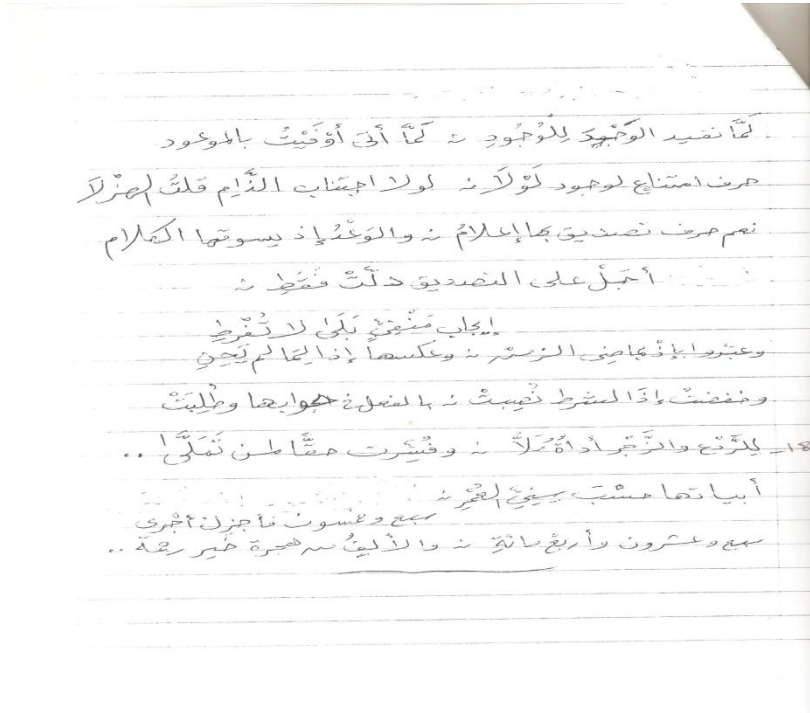 لَمَّا تفيد الوجود لِلْوُجُودِ ؞ لَمَّا أتى أوْفَيْتُ بالموعود
حرف امتناعٍ لوجود لَوْلَا ؞ لولا اجتناب الذَّامِ قلتُ الهزْلَا
نعم حرف تصديق بها إعلامُ ؞ والوَعْدُ إذ يسوقها الكلام
أجَلْ على التصديق دلَّتْ فَقَطِ ؞
إيجاب مَنْفِيٍّ بَلَى لا تُفْرِطِ
وعبّروا بإذْ لماضى الزمن ؞ وعكسها إذا لِمَا لم يَحِنِ
وخفضتْ إذَا لشرط نُصِبتْ ؞ بالفعل في جوابها وطُلِبَتْ
18- لِلرَّدْعِ والزَّجْر أداةُ كَلَّا ؞ وفُسِّرت حقًّا لمن تَمَلَّى! ..
أبياتها حسْبَ سِنِيِّ العُمْرِ ؞
سبع وخمسون فأجزِلْ أجْرى
سبع وعشرون وأربعْ مائةِ ؞ والألفُ من هجرة خير رحمة ..